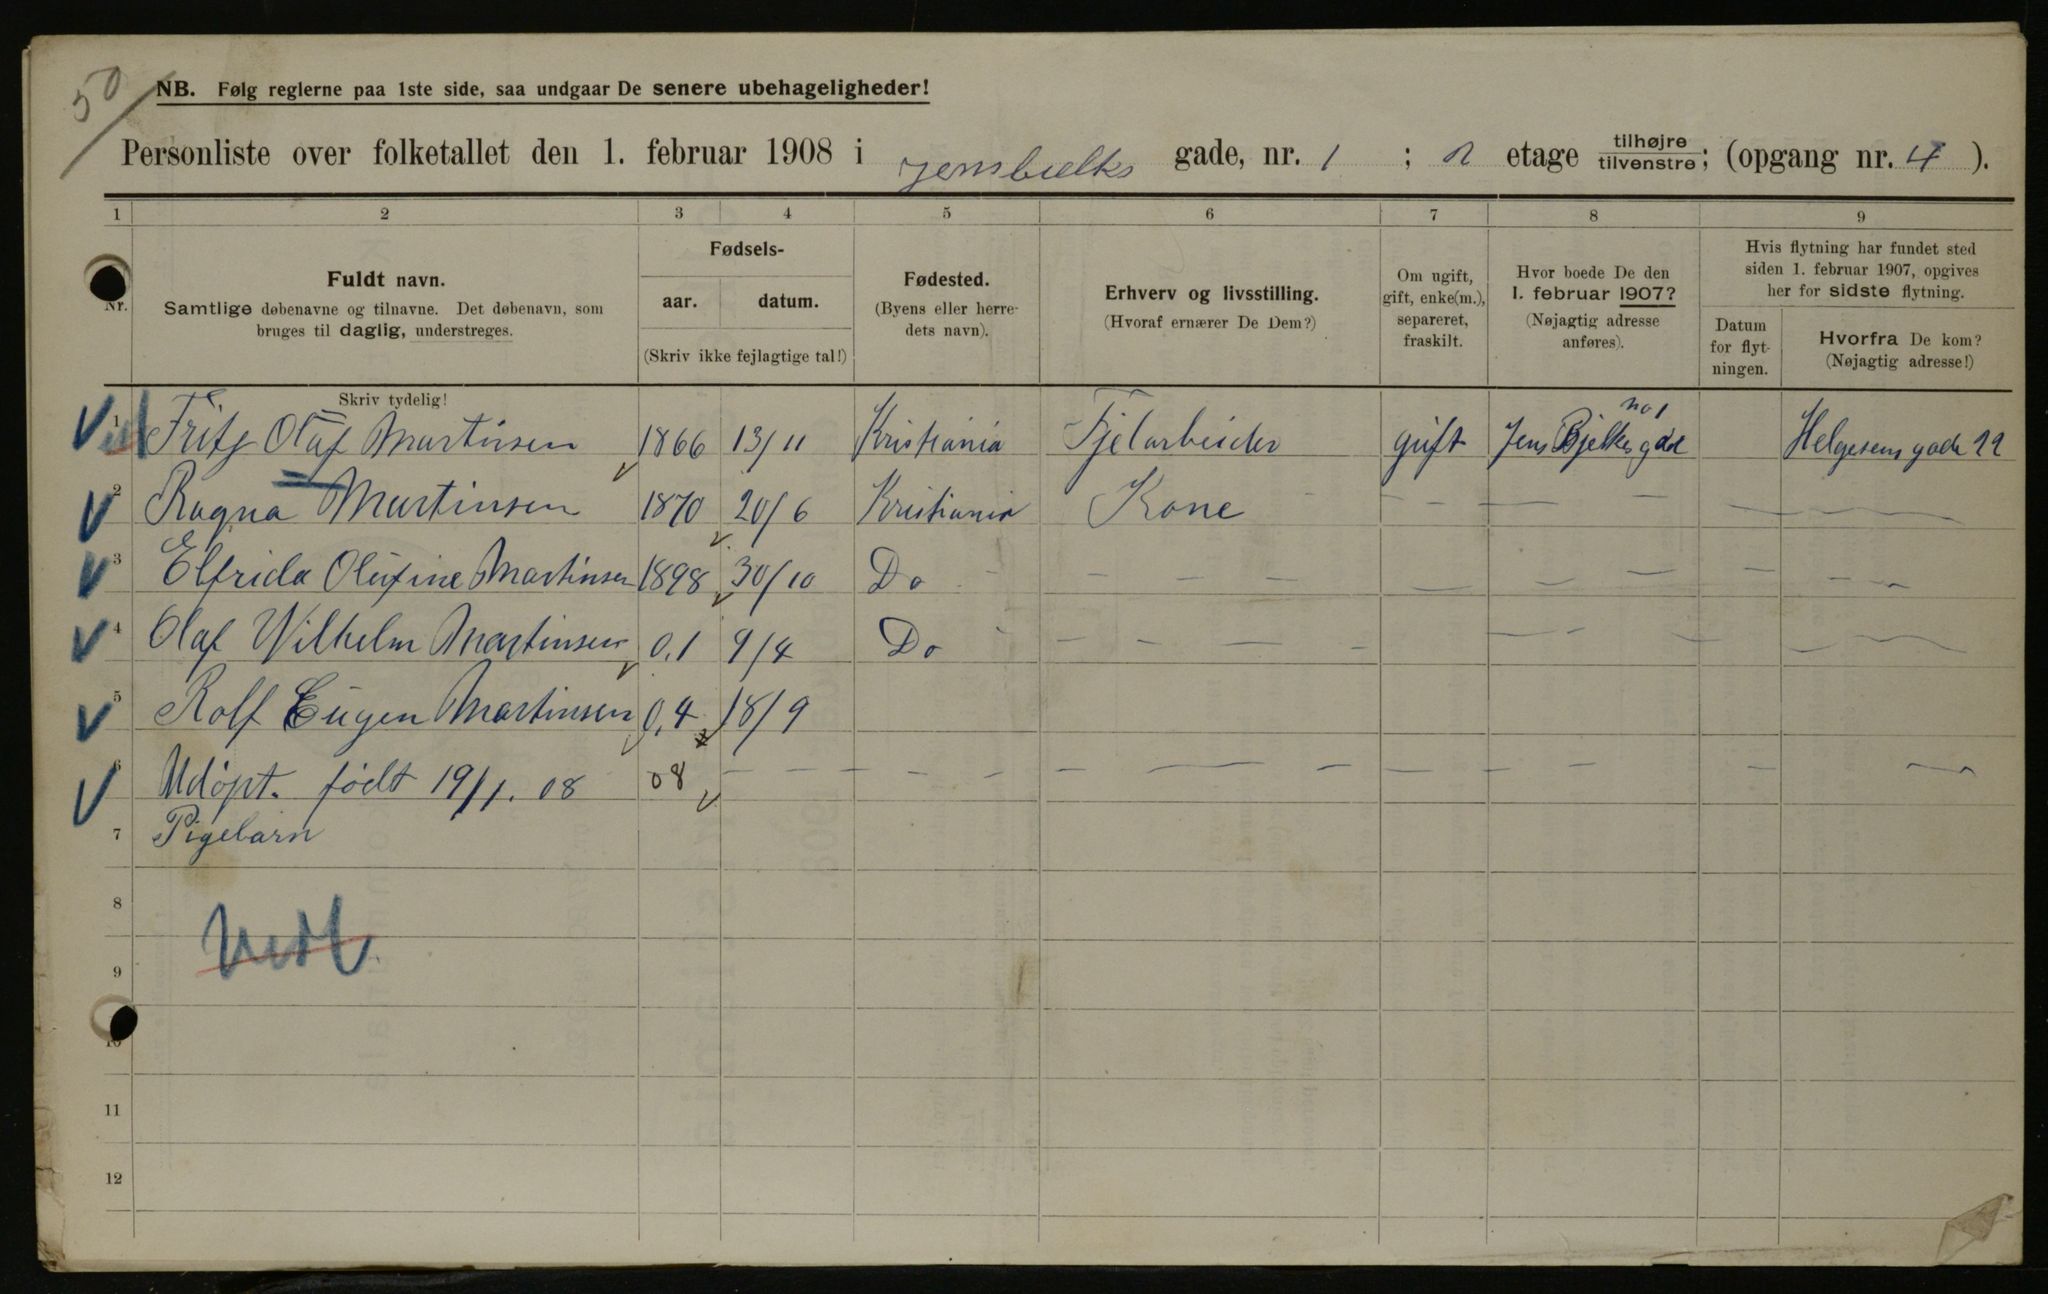 50
NB. Følg reglerne paa 1ste side, saa undgaar De senere ubehageligheder!
Personliste over folketallet den 1. februar 1908 i Jensbielks gade, nr. 1 ; 2 etage tilhøjre tilvenstre; (opgang nr. 4 ).
1 2 3 4 5 6 7 8 9
Nr.
Fuldt navn.
Samtlige døbenavne og tilnavne. Det døbenavn, som
bruges til daglig, understreges.
Skriv tydelig!
Fødsels-
aar. datum.
(Skriv ikke fejlagtige tal!)
Fødested.
(Byens eller herre-
dets navn).
Erhverv og livsstilling.
(Hvoraf ernærer De Dem?)
Om ugift,
gift, enke(m.),
separeret,
fraskilt.
Hvor boede De den
1. februar 1907?
(Nøjagtig adresse
anføres).
Hvis flytning har fundet sted
siden 1. februar 1907, opgives
her for sidste flytning.
Datum
for flyt-
ningen.
Hvorfra De kom?
(Nøjagtig adresse!)
no 1
1 Fritz Olaf Martinsen 1866 13/11 Kristiania Fjelarbeider gift Jens Bjelkes gade Helgesens gade 22
2 Ragna Martinsen 1870 20/6 Kristiania Kone - - - - -
3 Elfrida Olufine Martinsen 1898 30/10 Do - - - - - - - -
4 Olaf Wilhelm Martinsen 0,1 9/4 Do - - - - - - -
5 Rolf Eugen Martinsen 0,4 18/9
6 Udöpt. född 19/1. 08 08 - - - - - - - -
7 Pigebarn
8
9
10
11
12